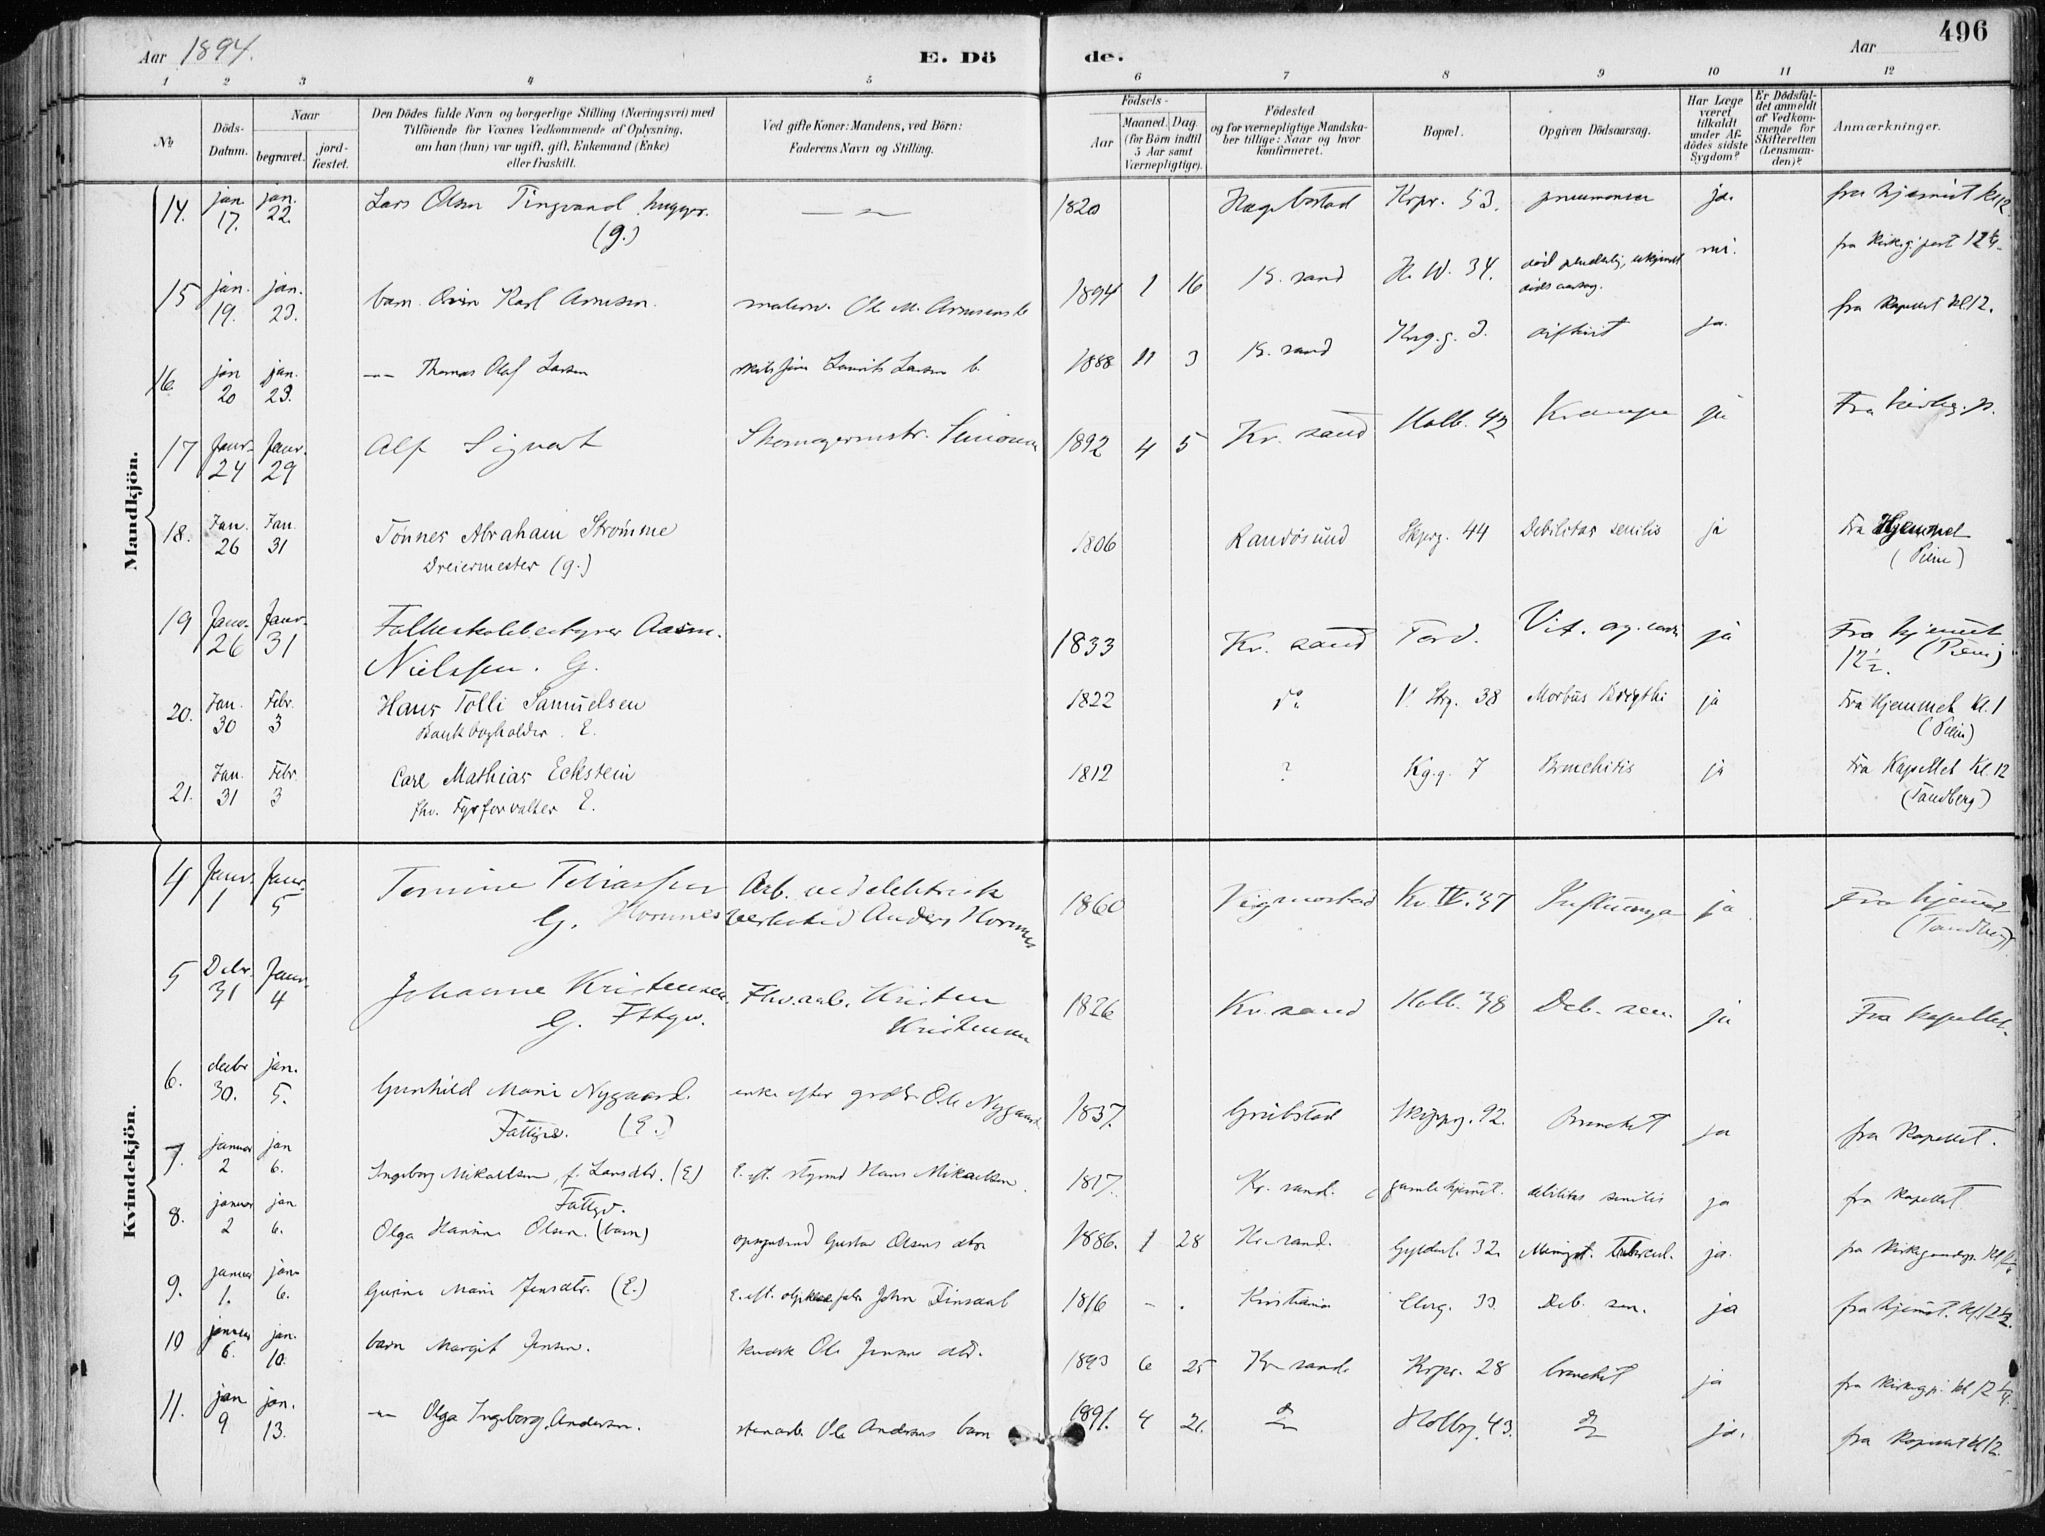 Aar 1894.
E. Döde.
Aar
496
1 2 3 4 5 6 7 8 9 10 11 12
№
Döds-Datum.
Naar
begravet.
jord-fæstet.
Den Dödes fulde Navn og borgerlige Stilling (Næringsvei) med
Tilföiende for Voxnes Vedkommende af Oplysning,
om han (hun) var ugift, gift, Enkemand (Enke)
eller fraskilt.
Ved gifte Koner: Mandens, ved Börn:
Faderens Navn og Stilling.
Födsels-
Aar
Maaned. Dag.
(for Börn indtil
5 Aar samt
Værnepligtige).
Födested
og for værnepligtige Mandska-
ber tillige: Naar og hvor
konfirmeret.
Bopæl.
Opgiven Dödsaarsag.
Har Læge
været
tilkaldt
under Af-
dödes sidste
Sygdom?
Er Dödsfal-
det anmeldt
af Vedkom-
mende for
Skifteretten
(Lensman-
den)?
Anmærkninger.
Mandkjön.
14. jan. 17. jan. 22. Lars Olsen Tingvand (g.) 1820 Hægebostad Krpr. 53. pneumonia ja. fra hjemmet kl 12
15 jan. 19. jan. 23. barn Karl Arnesen. Ole M. Arnesens b. 1894 1 16 K. sand K. W. 34. nei.
16. jan 20 jan. 23. — Thomas Olaf Larsen Larsen b. 1888 11 3 K. sand difterit ja. fra kapellet kl 12.
17 Janr. 24 Janr. 29 Alf Sigvart Skomagermstr. 1892 4 5 Kr. sand Holb. 42 Krampe ja Fra kirkeg. p.
18. Jan. 26 Jan. 31 Tönnes Abraham Strömme
Dreiermester (g.) 1806 Randösund Skprg. 44 Debilitas senilis ja Fra Hjemmet
19 Janr. 26 Janr. 31 Folkeskolebestyrer Aasm.
Nielssen. G. 1833 Kr. sand Vit. org. cordis ja Fra hjemmet
12½.
20. Jan. 30 Febr. 3 Hans Tolli Samuelsen
Bankbogholder. E. 1822 do 38 Morbus Brigthi ja Fra Hjemmet Kl. 1
21. Jan. 31 Febr. 3 Carl Mathias Eckstein
fhv. Fyrforvalter E. 1812 ? Kg.g. 7 Bronchitis ja Fra Kapellet Kl. 12
(Tandberg)
Kvindekjön.
4 Janr. 1 Janr. 5 Tomine Tobiassen
G. Hornnes Arb. ved elektrisk
verksted Anders Hornnes 1860 Vigmostad Kr. IV. 37 Influenza ja Fra hjemmet
(Tandberg)
5 Debr. 31 Janr. 4 Johanne Kristensen
G. Fttgv. Fhv. arb. Kristen
Kristensen 1826 Kr. sand Holb. 38 Deb. sen. ja Fra kapellet.
6. decbr 30. jan. 5. Gunhild Marie Nygaard.
Fattigv. (E.) enke efter Ole Nygaard 1837. Grimstad Skippg. 92. Bronchit ja fra kapellet.
7. januar 2 jan 6. Ingeborg Mikaelsen, f. Larsdtr. (E)
Fattgv. E. eft. styrmd Hans Mikaelsen 1817. Kr. sand. gamlehjemmet. debilitas senilis ja fra kapellet.
8. januar 2 jan 6. Olga Hansine Olsen. (barn) Gustav Olsens dtr 1886. 1 28 Kr. sand. Gyldenl. 32. Mening. Tubercul. ja.
9. januar 1. jan. 6. Gurine Marie Jensdtr. (E.) E. eft. John Finsdal 1816 - . Kristiania Elveg. 33. Deb. sen. ja fra hjemmet. kl 12½.
10 januar 6. jan. 10. barn Margit Jensen. Ole Jensens dtr. 1893 6 25 Kr. sand. Krpr. 28 bronchit ja
11. jan 9 jan. 13. — Olga Ingeborg Andersen. stenarb. Ole Andersens barn 1891. 4 21. do Holbg. 43. do ja. fra kapellet kl 12.